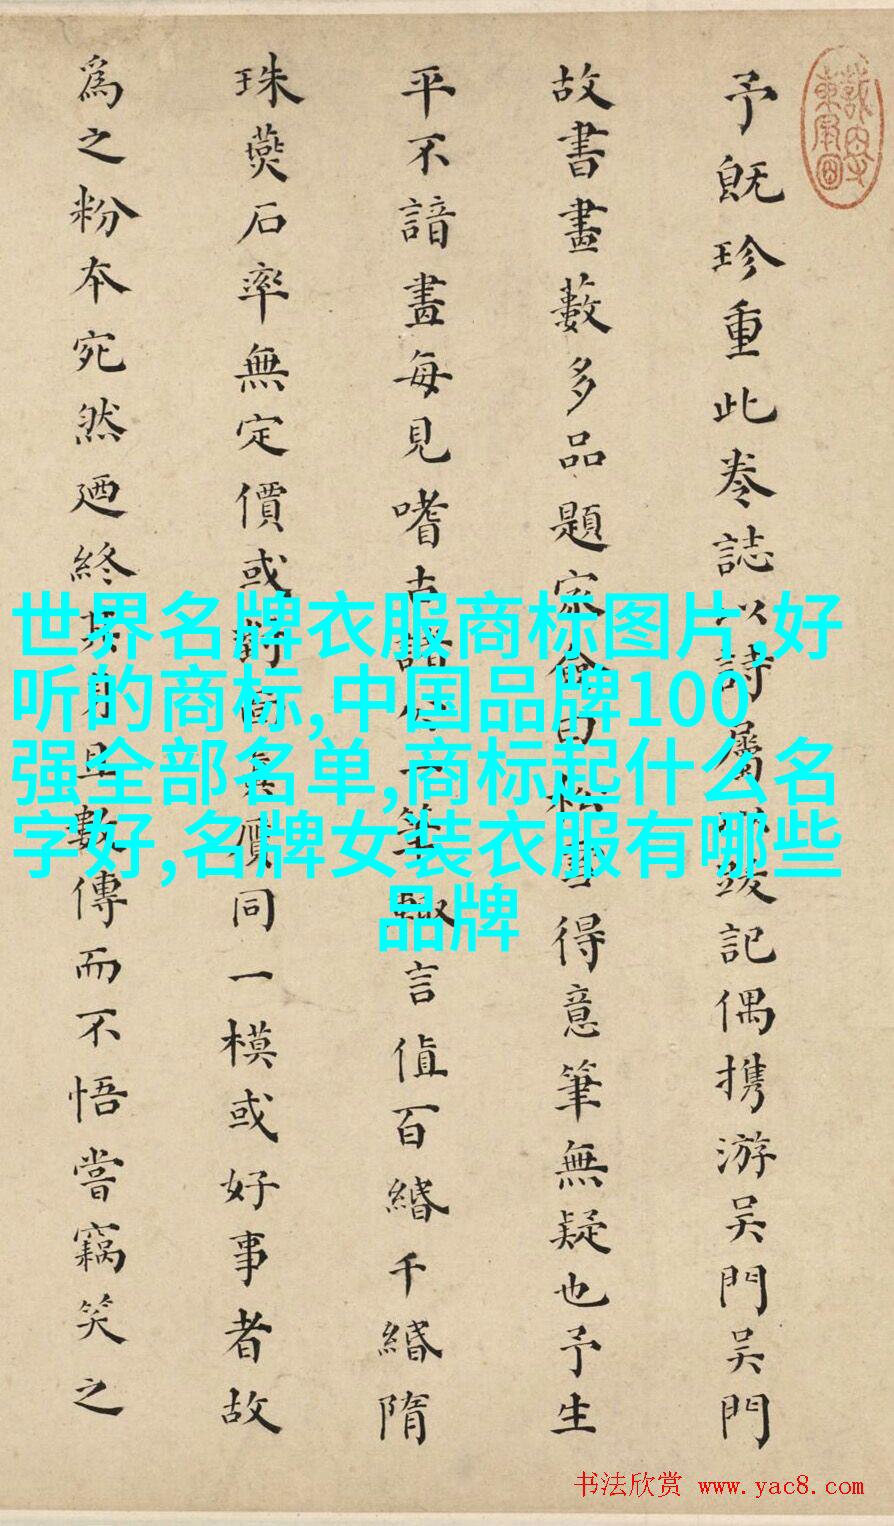 予既珍重此卷誌以詩屬跋記偶携游吳門吳門
故書畫藪多品題家僉曰松雪得意筆無疑也予生
平不諳畫每見嗜古諸一筆輙言值百緡千緡隋
珠燕石率無定價或對面真贋同一模或好事者故
為之粉本宛然廼終其身且數傳而不悟嘗竊笑之
世界名牌衣服商标图片,好
听的商标,中国品牌100
强全部名单,商标起什么名
字好,名牌女装衣服有哪些
品牌
书法欣赏 www.yac8.com